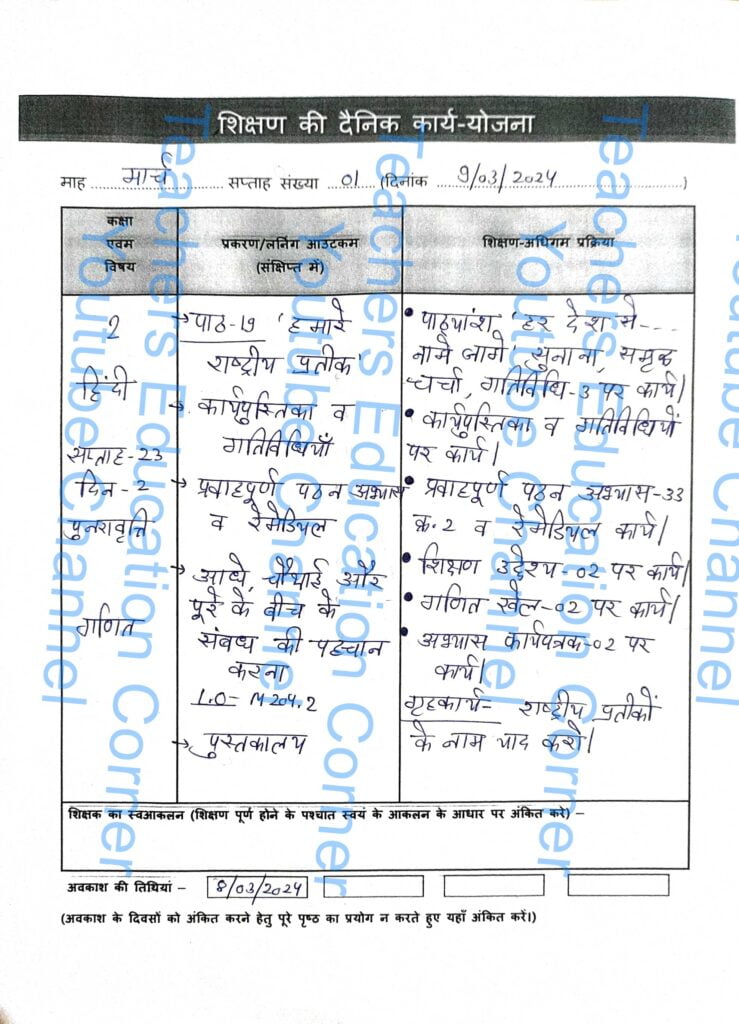 शिक्षण की दैनिक कार्य-योजना
माह मार्च सप्ताह संख्या 01 (दिनांक 9/03/2024)
कक्षा
एवम
विषय
प्रकरण/लर्निंग आउटकम
(संक्षिप्त में)
शिक्षण-अधिगम प्रक्रिया
2
हिंदी
सप्ताह-23
दिन-2
पुनरावृत्ति
गणित
→ पाठ-19 'हमारे
राष्ट्रीय प्रतीक'
→ कार्यपुस्तिका व
गतिविधियाँ
→ प्रवाहपूर्ण पठन अभ्यास
व रेमेडियल
→ आधे, चौथाई और
पूरे के बीच के
संबध की पहचान
करना
L.O- M204.2
→ पुस्तकालय
• पाठ्यांश 'हर देश से---
नामे जागे' सुनाना, समृद्ध
चर्चा, गतिविधि-3 पर कार्य।
• कार्यपुस्तिका व गतिविधियों
पर कार्य।
• प्रवाहपूर्ण पठन अभ्यास-33
क.2 व रेमेडियल कार्य।
• शिक्षण उद्देश्य-02 पर कार्य।
• गणित खेल-02 पर कार्य।
• अभ्यास कार्यपत्रक-02 पर
कार्य।
गृहकार्य- राष्ट्रीय प्रतीकों
के नाम याद करो।
शिक्षक का स्वआकलन (शिक्षण पूर्ण होने के पश्चात स्वयं के आकलन के आधार पर अंकित करे) –
अवकाश की तिथियां – 8/03/2024
(अवकाश के दिवसों को अंकित करने हेतु पूरे पृष्ठ का प्रयोग न करते हुए यहाँ अंकित करें।)
Teachers Education Corner
Youtube Channel
Teachers Education Corner
Youtube Channel
Teachers Education Corner
Youtube Channel